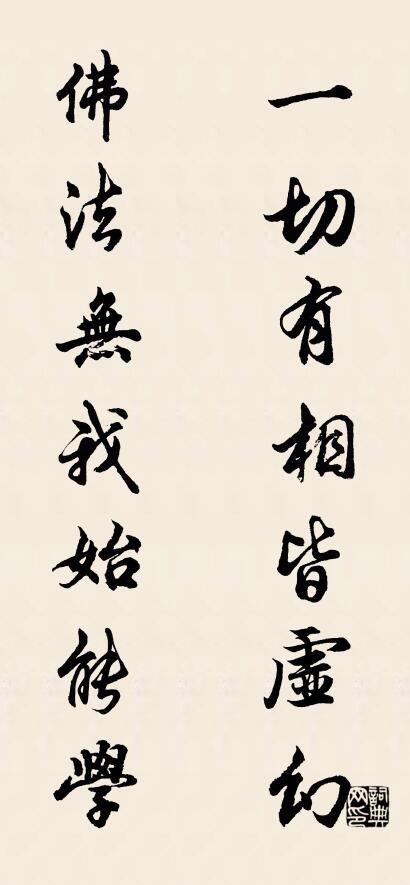 一切有相皆虛幻
佛法無我始能學
詞典网印